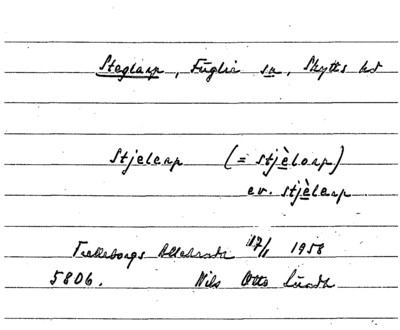 Steglarp, Fuglie sn, Skytts hd
Stjelarp (= stjèlarp)
ev. stjèlarp
Trelleborgs Allehanda 17/1 1958
5806. Nils Otto Lundh